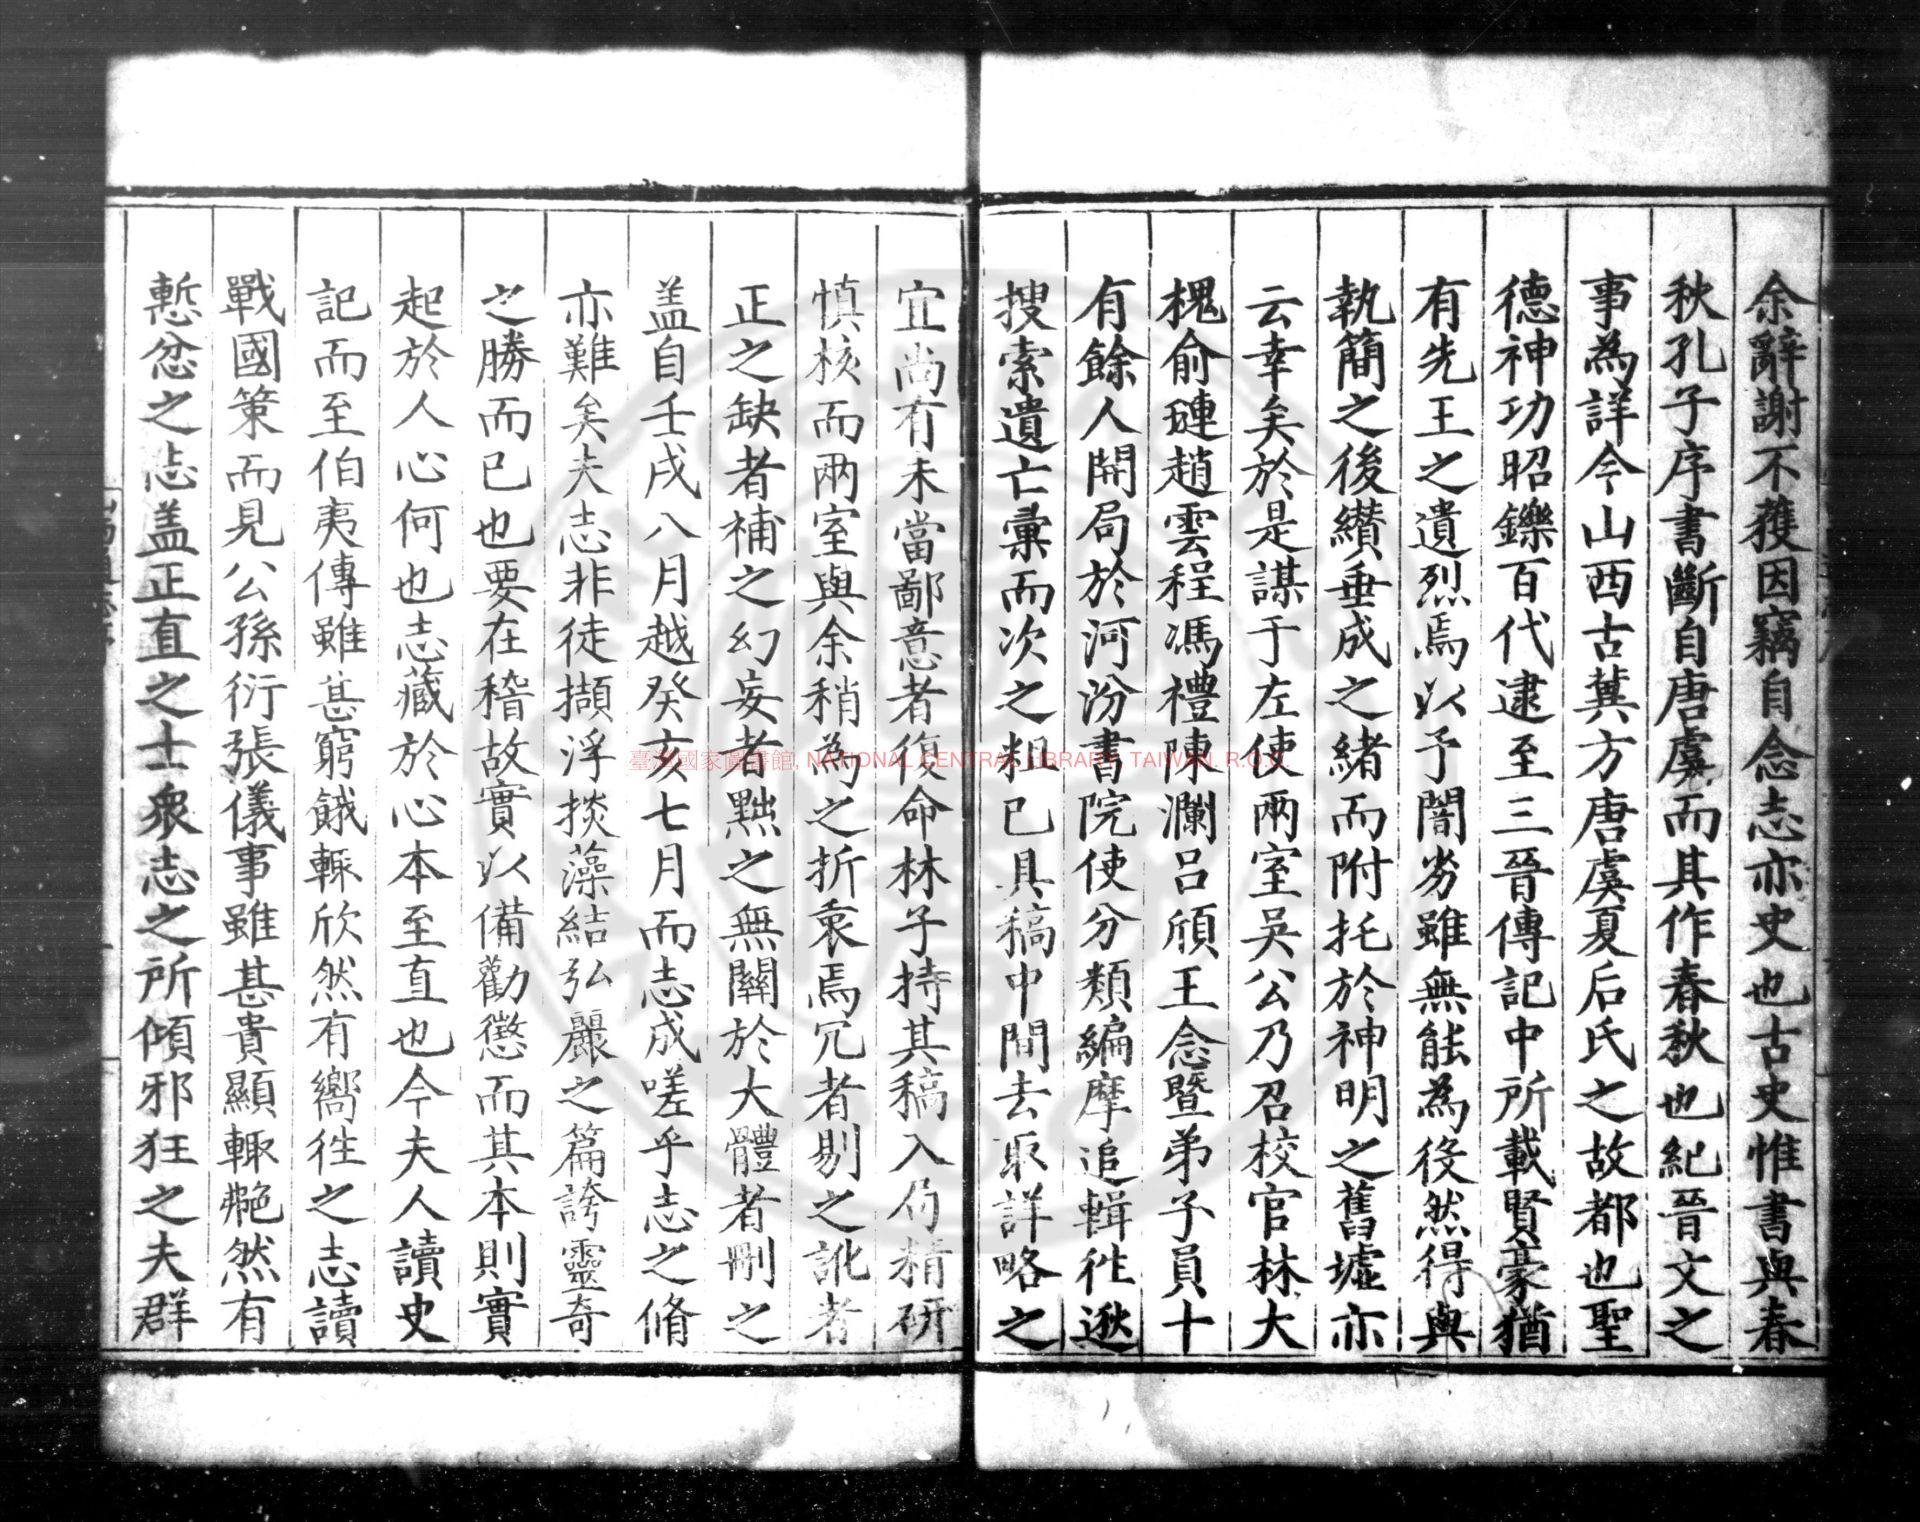 余辭謝不獲因竊自念志亦史也古史惟書與春
秋孔子序書斷自唐虞而其作春秋也紀晉文之
事為詳今山西古冀方唐虞夏后氏之故都也聖
德神功昭鑠百代逮至三晉傳記中所載賢豪猶
有先王之遺烈焉以予闇劣雖無能為役然得與
執簡之後纉垂成之緒而附托於神明之舊墟亦
云幸矣於是謀于左使兩室吳公乃召校官林大
槐俞璉趙雲程馮禮陳瀾呂頎王念暨弟子員十
有餘人開局於河汾書院使分類編摩追輯徃逖
搜索遺亡彙而次之粗已具稿中間去取詳略之
宜尚有未當鄙意者復命林子持其稿入仍精研
慎核而兩室與余稍為之折衷焉冗者剔之訛者
正之缺者補之幻妄者黜之無關於大體者刪之
盖自壬戌八月越癸亥七月而志成嗟乎志之脩
亦難矣夫志非徒擷浮掞藻結弘麗之篇誇靈奇
之勝而已也要在稽故實以備勸懲而其本則實
起於人心何也志藏於心本至直也今夫人讀史
記而至伯夷傳雖甚窮餓輒欣然有嚮徃之志讀
戰國策而見公孫衍張儀事雖甚貴顯輒艴然有
慙忿之志盖正直之士衆志之所傾邪狂之夫群
臺灣國家圖書館, NATIONAL CENTRAL LIBRARY, TAIWAN, R.O.C.